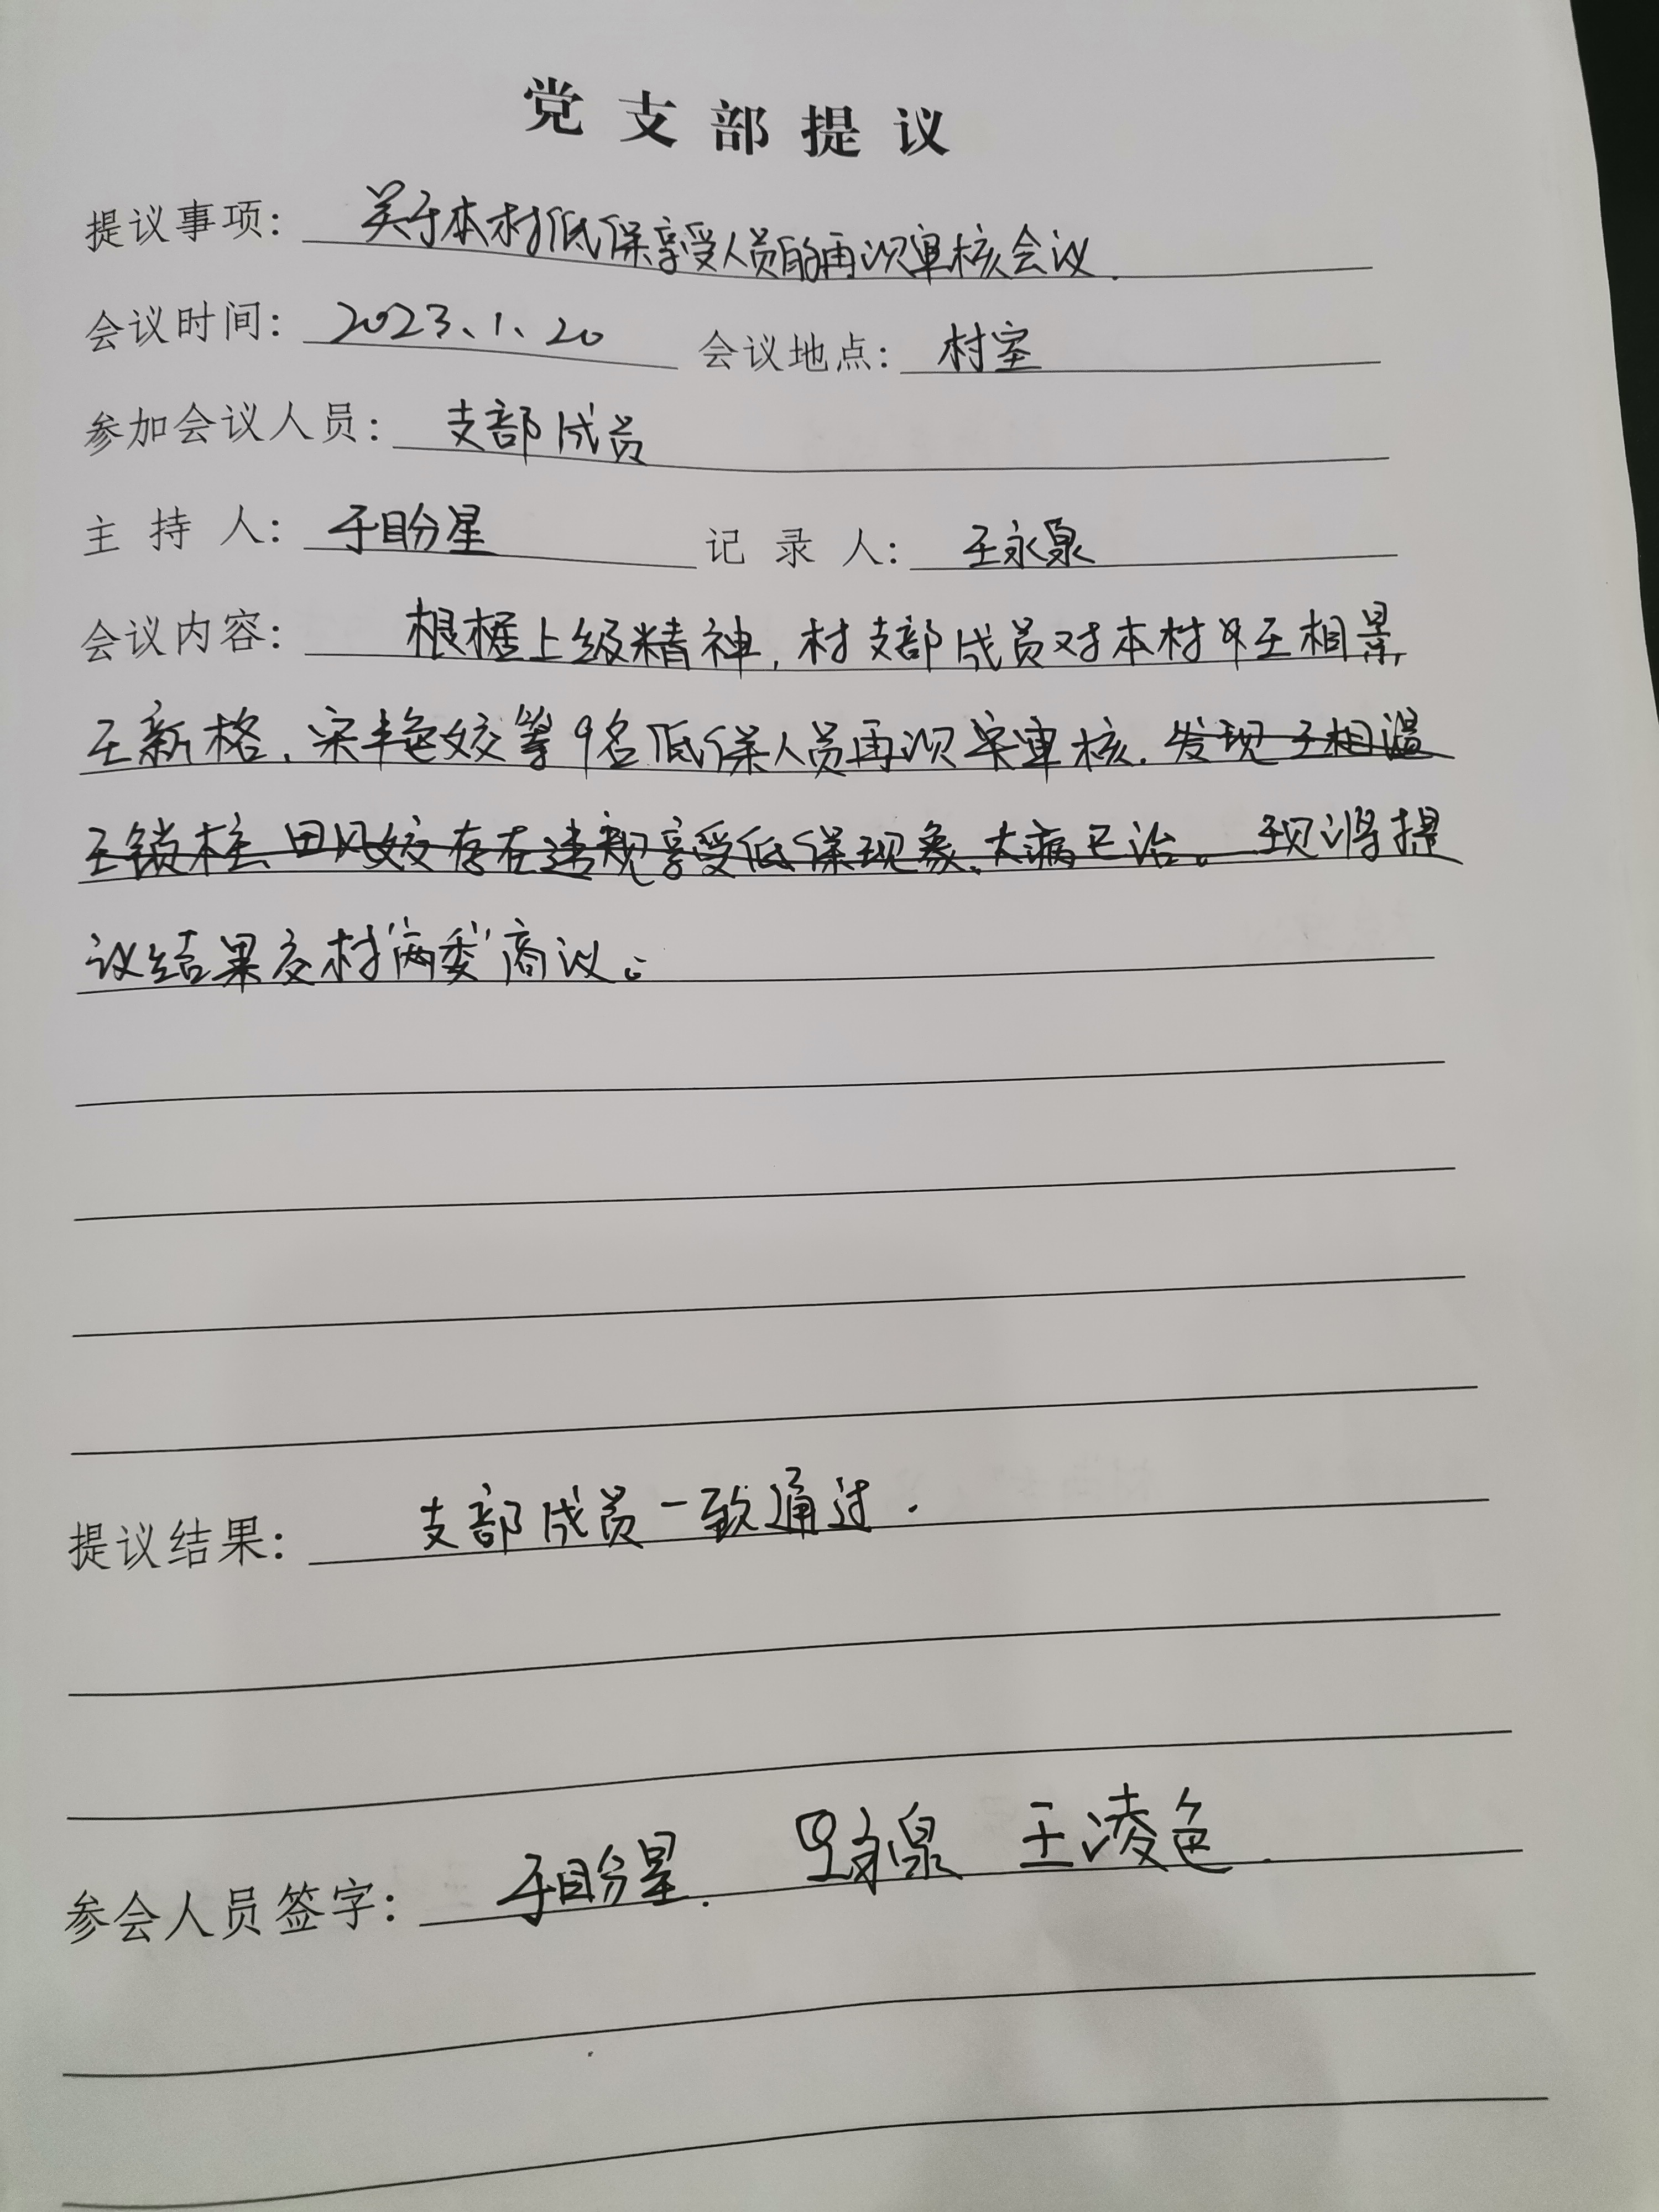 党支部提议
提议事项: 关于本村低保享受人员的再次审核会议.
会议时间: 2023、1、20 会议地点: 村室
参加会议人员: 支部成员
主持人: 于盼星 记录人: 王永泉
会议内容: 根据上级精神,村支部成员对本村中王相景,
王新格、宋艳姣等9名低保人员再次审核.发现王相温
王锁柱、田风姣存在违规享受低保现象,大病已治。现将提
议结果交村“两委”商议。
提议结果: 支部成员一致通过.
参会人员签字: 于盼星. 王永泉 王凌色.